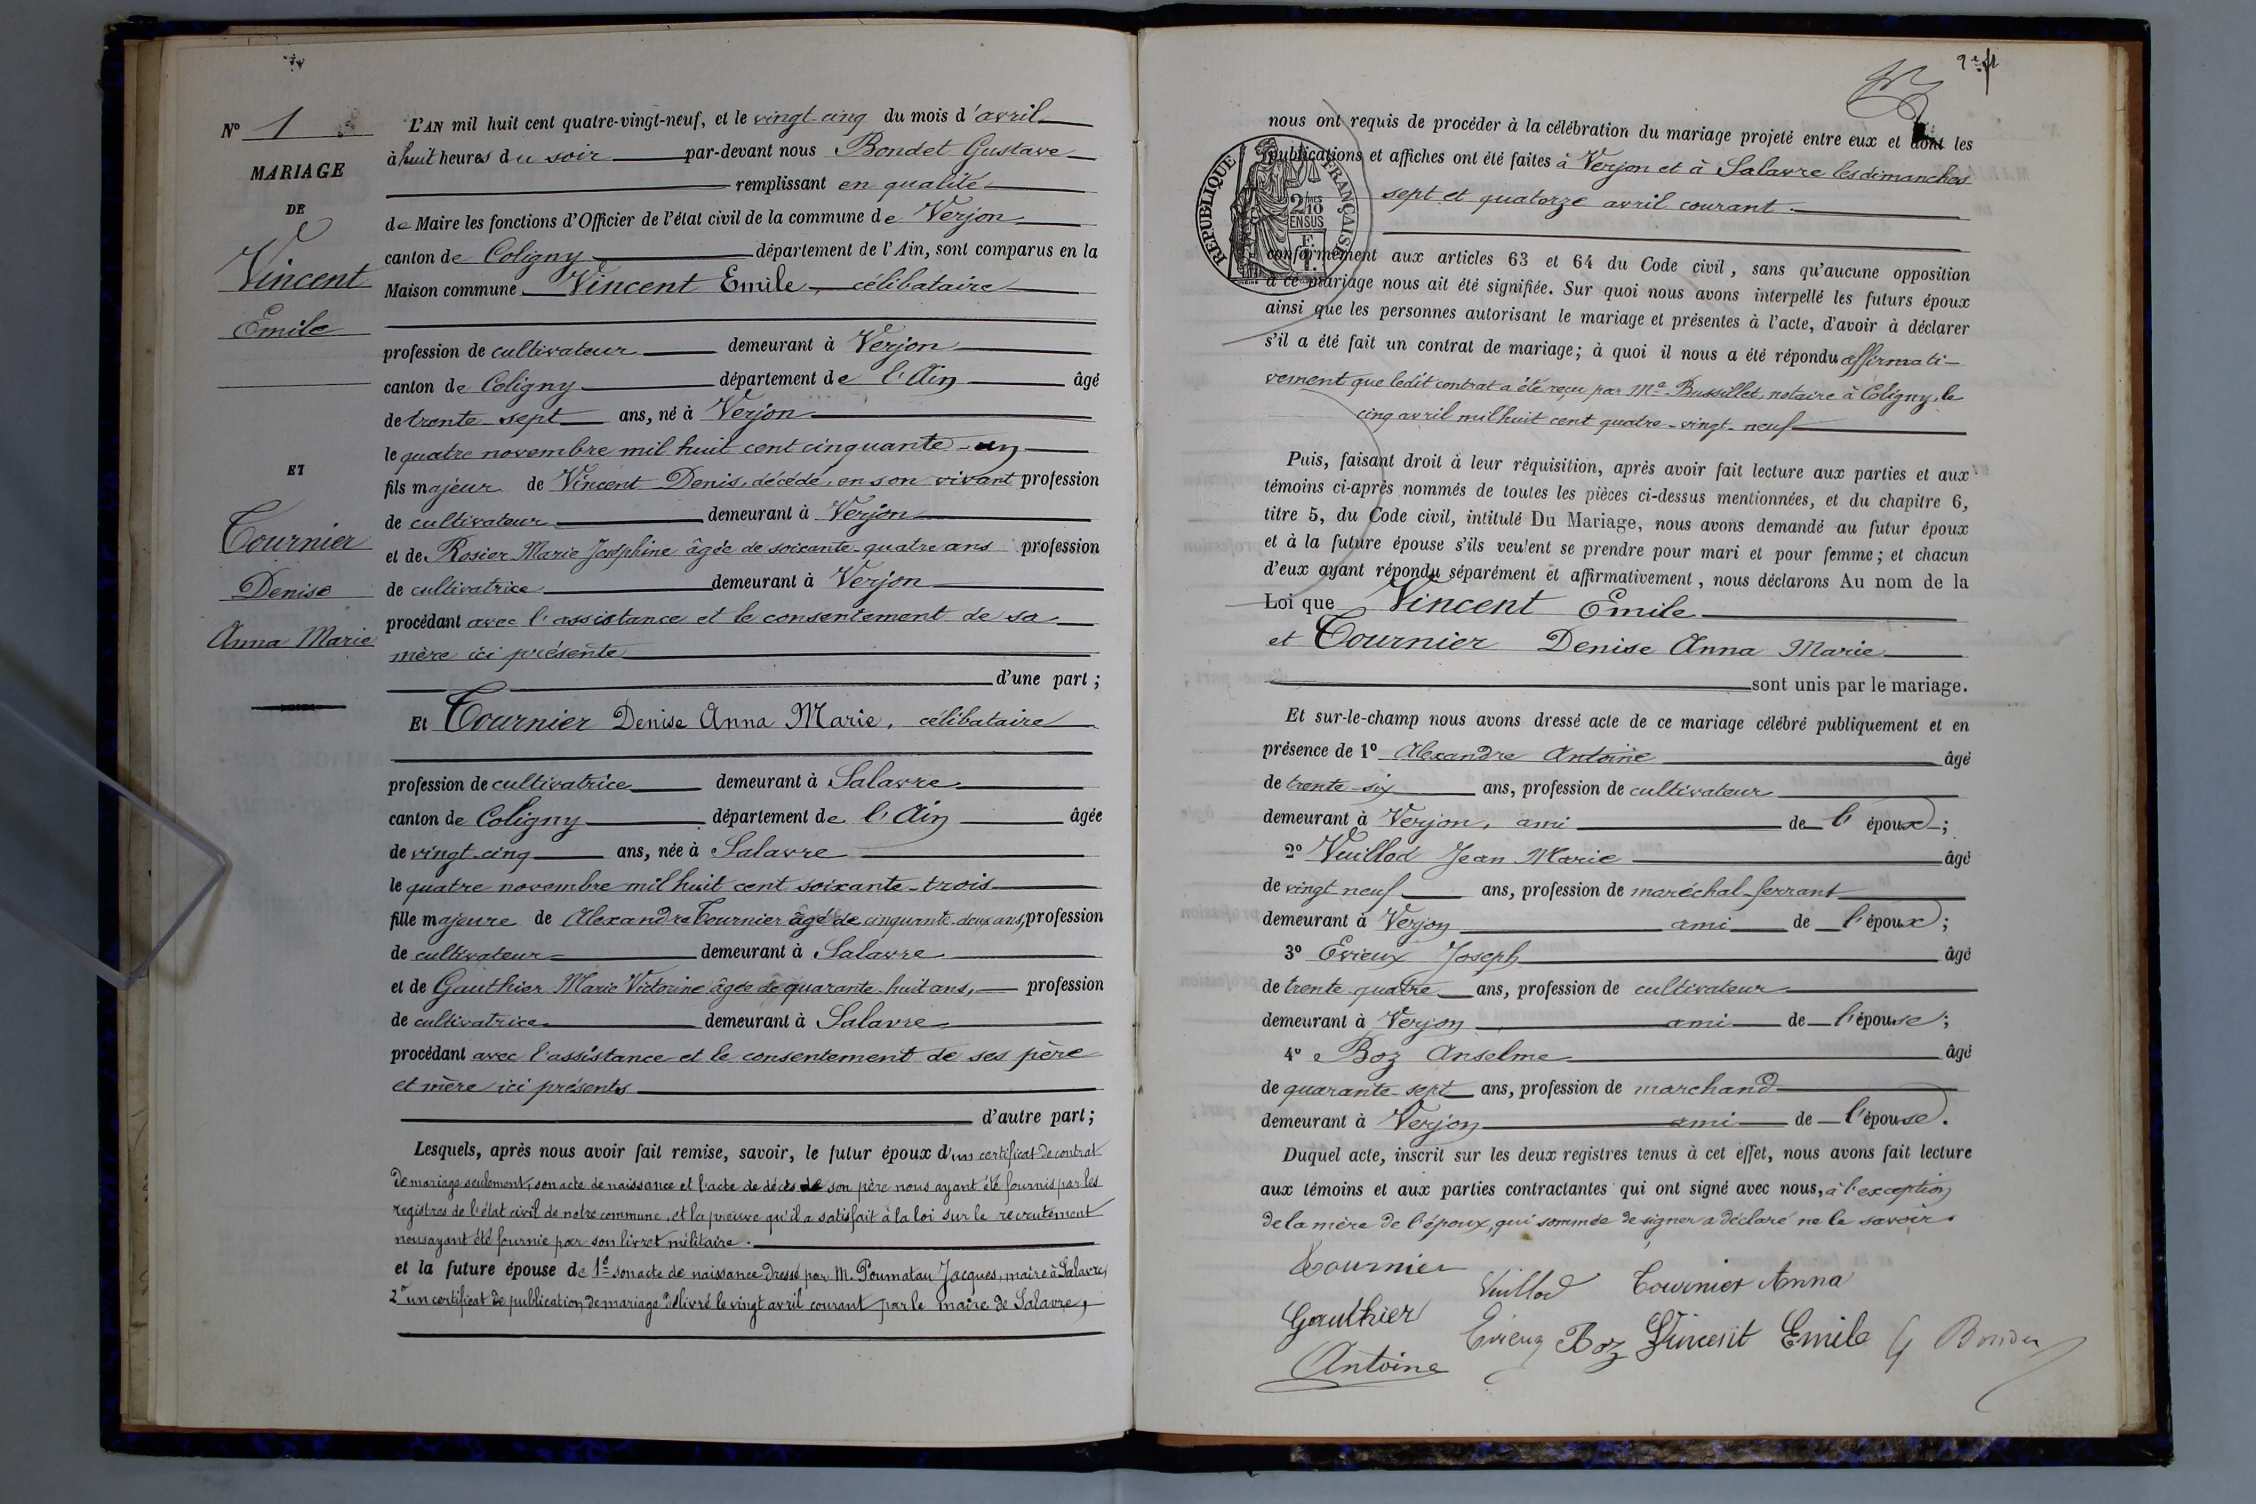 N° 1
MARIAGE
DE
Vincent
Emile
ET
Tournier
Denise
Anna Marie
L'AN mil huit cent quatre-vingt-neuf, et le vingt-cinq du mois d'avril
à huit heures du soir par-devant nous Bondet Gustave
remplissant en qualité
de Maire les fonctions d'Officier de l'état civil de la commune de Verjon
canton de Coligny département de l'Ain, sont comparus en la
Maison commune Vincent Emile célibataire
profession de cultivateur demeurant à Verjon
canton de Coligny département de l'Ain âgé
de trente-sept ans, né à Verjon
le quatre novembre mil huit cent cinquante-un
fils majeur de Vincent Denis, décédé, en son vivant profession
de cultivateur demeurant à Verjon
et de Rosier Marie Joséphine âgée de soixante-quatre ans profession
de cultivatrice demeurant à Verjon
procédant avec l'assistance et le consentement de sa
mère ici présente
d'une part ;
Et Tournier Denise Anna Marie, célibataire
profession de cultivatrice demeurant à Salavre
canton de Coligny département de l'Ain âgée
de vingt-cinq ans, née à Salavre
le quatre novembre mil huit cent soixante-trois
fille majeure de Alexandre Tournier âgé de cinquante-deux ans, profession
de cultivateur demeurant à Salavre
et de Gauthier Marie Victorine âgée de quarante-huit ans, profession
de cultivatrice demeurant à Salavre
procédant avec l'assistance et le consentement de ses père
et mère ici présents
d'autre part ;
Lesquels, après nous avoir fait remise, savoir, le futur époux d'un certificat de contrat
de mariage seulement, son acte de naissance et l'acte de décès de son père nous ayant été fournis par les
registres de l'état civil de notre commune, et la preuve qu'il a satisfait à la loi sur le recrutement
nous ayant été fournie par son livret militaire.
et la future épouse de 1° son acte de naissance dressé par M. Pournatau Jacques, maire à Salavre,
2° un certificat de publication de mariage délivré le vingt avril courant par le maire de Salavre,
nous ont requis de procéder à la célébration du mariage projeté entre eux et dont les
publications et affiches ont été faites à Verjon et à Salavre les dimanches
sept et quatorze avril courant.
RÉPUBLIQUE FRANÇAISE
2/10
EN SUS
conformément aux articles 63 et 64 du Code civil, sans qu'aucune opposition
à ce mariage nous ait été signifiée. Sur quoi nous avons interpellé les futurs époux
ainsi que les personnes autorisant le mariage et présentes à l'acte, d'avoir à déclarer
s'il a été fait un contrat de mariage ; à quoi il nous a été répondu affirmati-
vement que ledit contrat a été reçu par Me Bussillet, notaire à Coligny, le
cinq avril mil huit cent quatre-vingt-neuf
Puis, faisant droit à leur réquisition, après avoir fait lecture aux parties et aux
témoins ci-après nommés de toutes les pièces ci-dessus mentionnées, et du chapitre 6,
titre 5, du Code civil, intitulé Du Mariage, nous avons demandé au futur époux
et à la future épouse s'ils veulent se prendre pour mari et pour femme ; et chacun
d'eux ayant répondu séparément et affirmativement, nous déclarons Au nom de la
Loi que Vincent Emile
et Tournier Denise Anna Marie
sont unis par le mariage.
Et sur-le-champ nous avons dressé acte de ce mariage célébré publiquement et en
présence de 1° Alexandre Antoine âgé
de trente-six ans, profession de cultivateur
demeurant à Verjon, ami de l'époux ;
2° Vuillod Jean Marie âgé
de vingt neuf ans, profession de maréchal-ferrant
demeurant à Verjon ami de l'époux ;
3° Evieux Joseph âgé
de trente-quatre ans, profession de cultivateur
demeurant à Verjon ami de l'épouse ;
4° Boz Anselme âgé
de quarante-sept ans, profession de marchand
demeurant à Verjon ami de l'épouse.
Duquel acte, inscrit sur les deux registres tenus à cet effet, nous avons fait lecture
aux témoins et aux parties contractantes qui ont signé avec nous, à l'exception
de la mère de l'époux, qui sommée de signer a déclaré ne le savoir.
Tournier
Vuillod Tournier Anna
Gauthier
Evieux Boz Vincent Emile G Bondet
Antoine